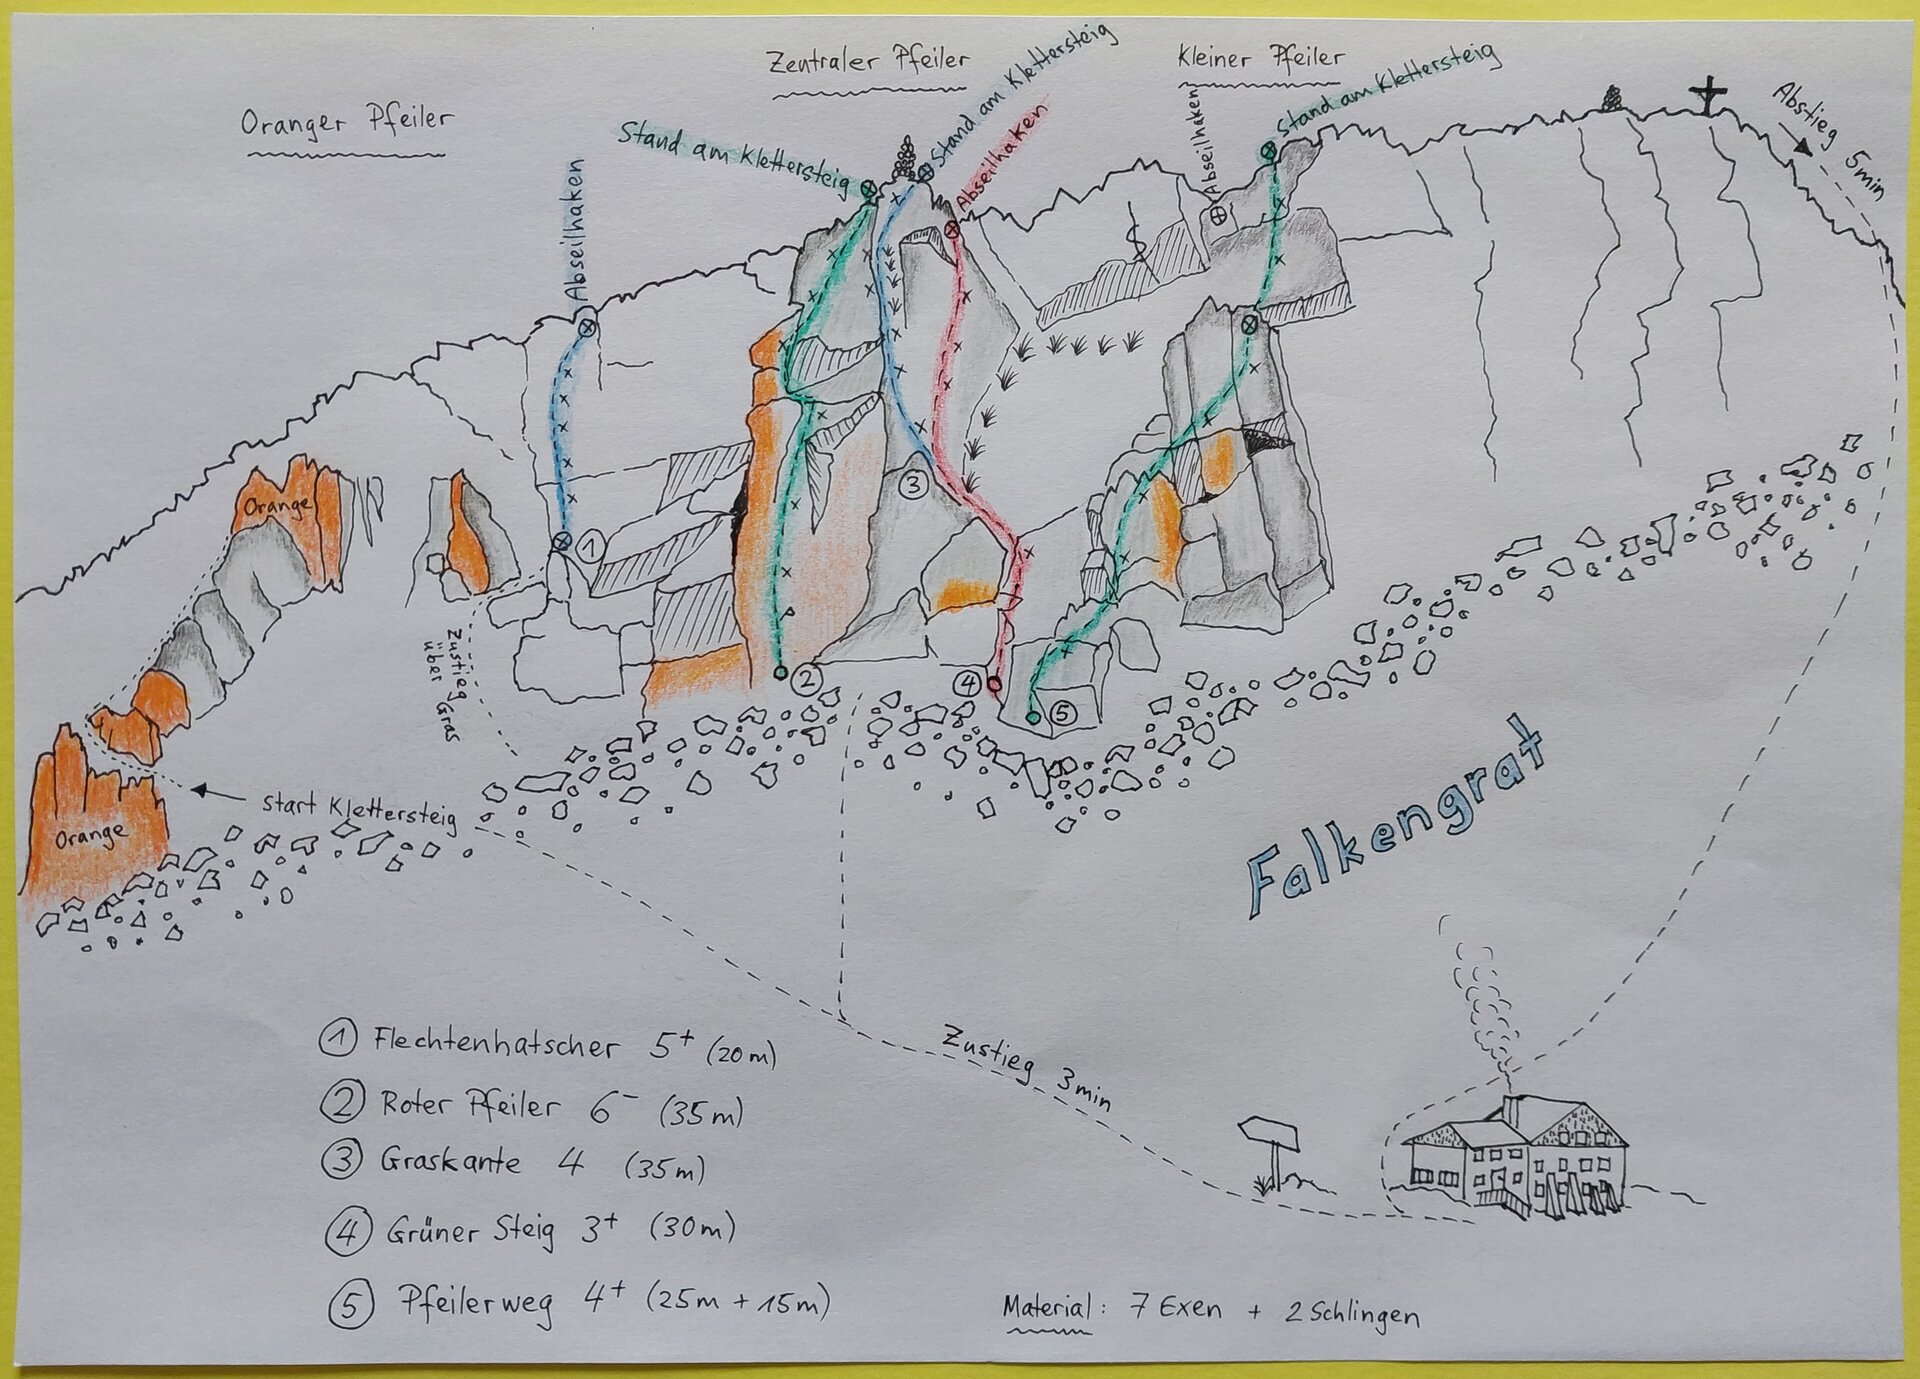 Oranger Pfeiler
Zentraler Pfeiler
Kleiner Pfeiler
Abseilhaken
Stand am Klettersteig
Stand am Klettersteig
Abseilhaken
Abseilhaken
Stand am Klettersteig
Abstieg 5min
Orange
1
3
2
4
5
Zustieg
über Gras
Orange
start Klettersteig
Falkengrat
Zustieg 3min
1 Flechtenhatscher 5+ (20m)
2 Roter Pfeiler 6- (35m)
3 Graskante 4 (35m)
4 Grüner Steig 3+ (30m)
5 Pfeilerweg 4+ (25m + 15m)
Material: 7 Exen + 2 Schlingen